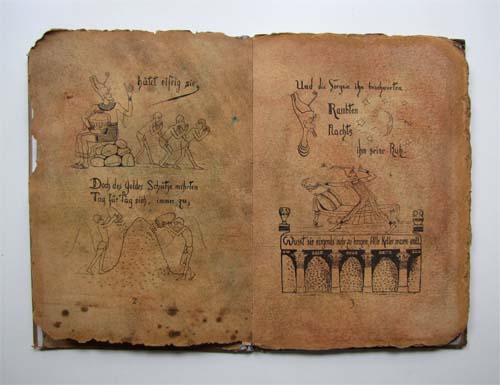 hütet eifrig sie,
Doch des Goldes Schätze mehrten
Tag für Tag sich, immer zu,
2
Und die Sorgen ihn beschwerten
Raubten
Nachts
ihm seine Ruh.
Wusst sie nirgends mehr zu bergen, Alle Keller waren voll
3